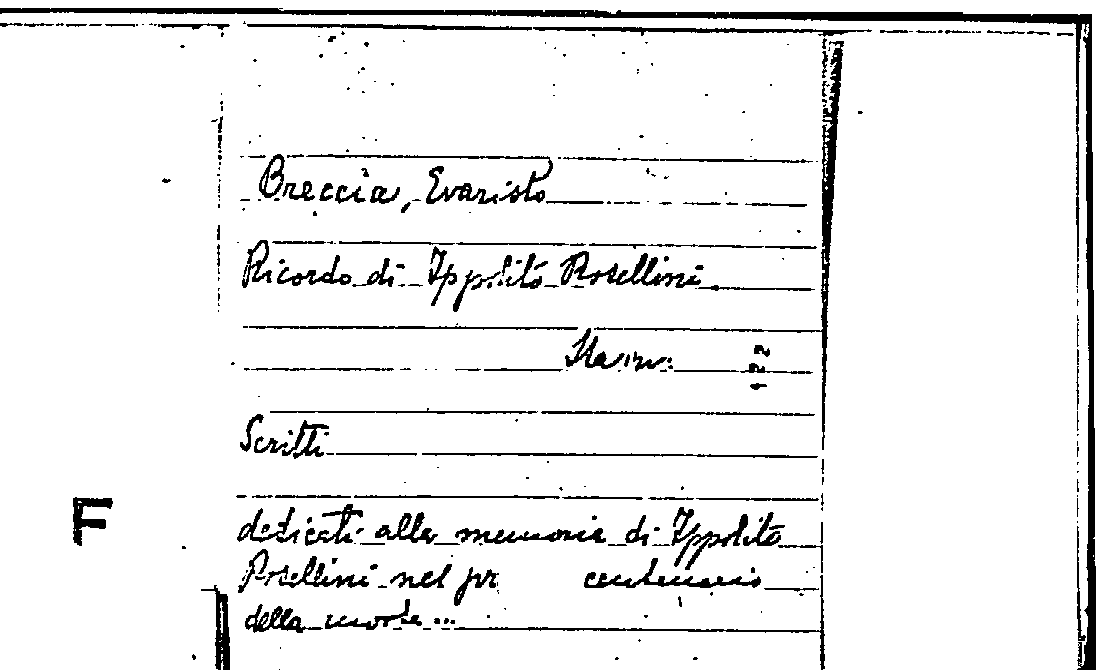 Breccia, Evaristo
Ricordo di Ippolito Rosellini.
122
Scritti
F
dedicati alla memoria di Ippolito
Rosellini nel pr centenario
della morte...